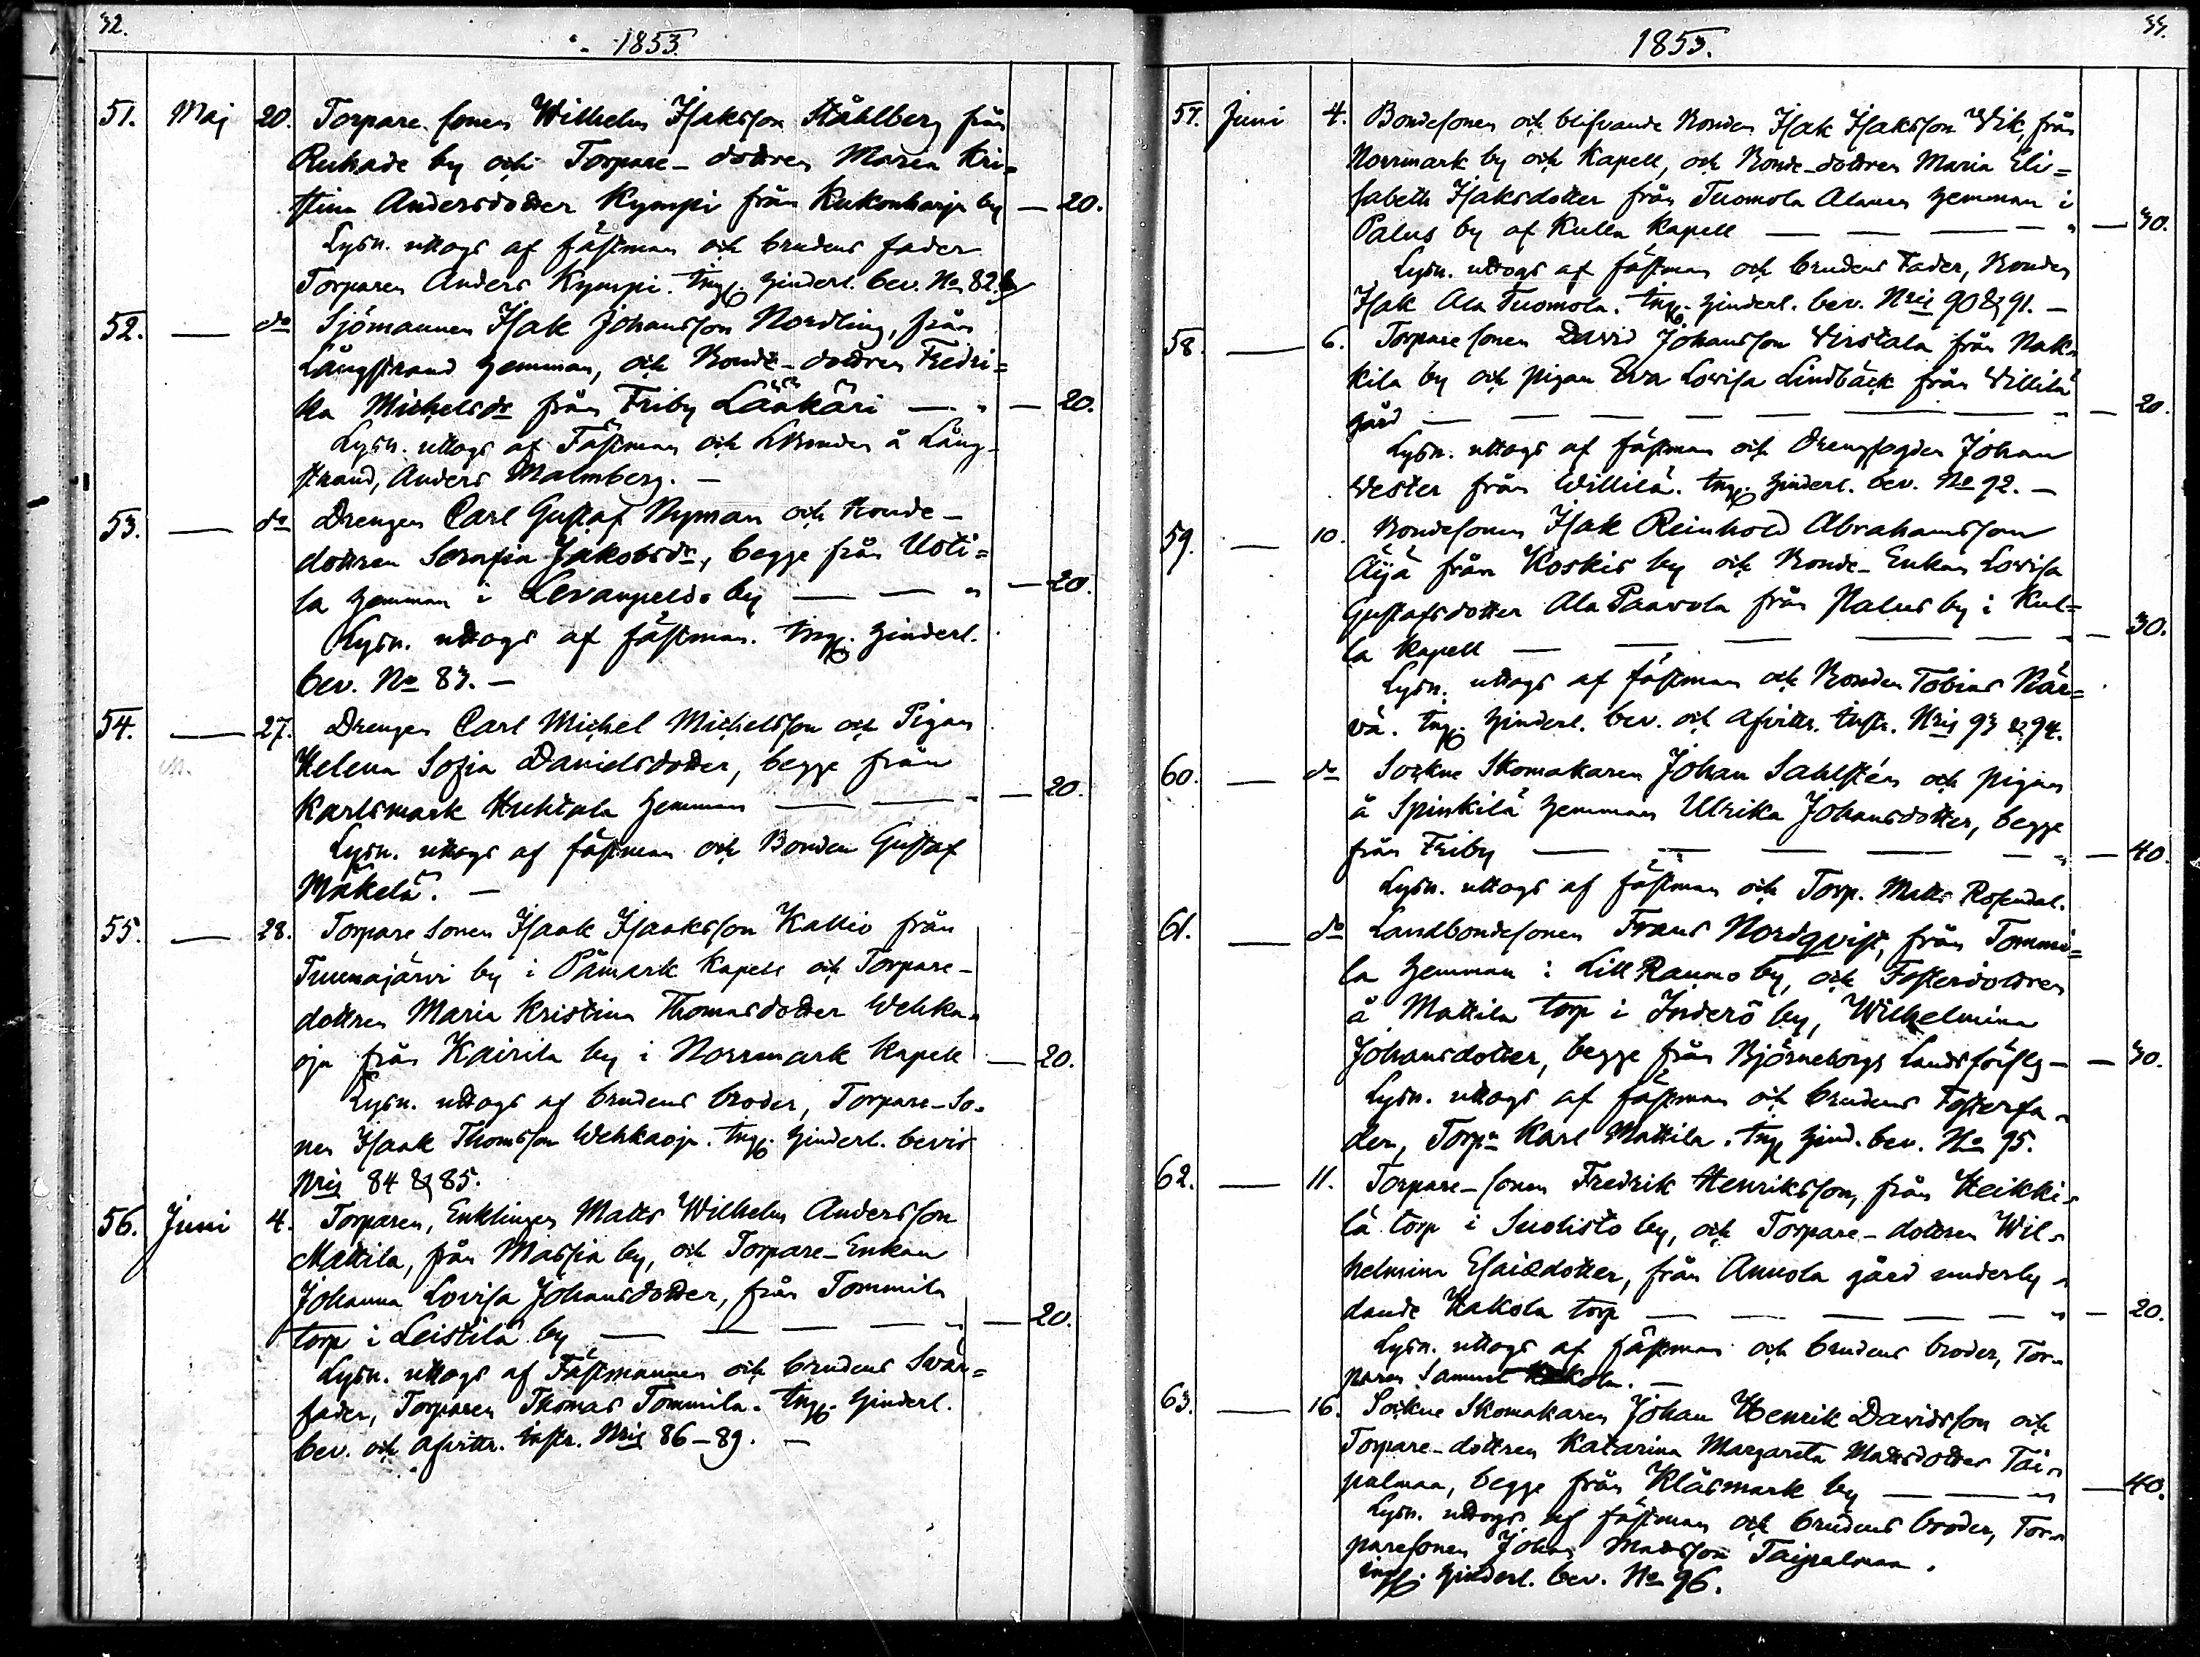 32.
1853.
51. Maj 20. Torpare sonen Wilhelm Isaksson Ståhlberg från
Ruhade by och Torpare-dottren Maria Kri-
stina Andersdotter Kympi från Kukonharja by — 20.
Lysn. uttogs af fästman och brudens fader
Torparen Anders Kympi. Ingf. hinderl. bev. No 82.
52. — do Sjömannen Isak Johansson Nordling, från
Långstrand hemman, och Bonde-dottren Fredri=
ka Michelsdr från Friby Lääkäri — " — 20.
Lysn. uttogs af Fästman och LBonden å Lång-
strand, Anders Malmberg. —
53. — do Drengen Carl Gustaf Nyman och Bonde-
dottren Serafia Jakobsdr, begge från Uoti=
la hemman i Levanpelds by — — " — 20.
Lysn. uttogs af fästman. Ingf. hinderl.
bev. No 83. —
54. — 27. Drengen Carl Michel Michelsson och Pigan
Helena Sofia Davidsdotter, begge från
Karlsmark Huhtala hemman — — " — 20.
Lysn. uttogs af fästman och Bonden Gustaf
Mäkelä. —
55. — 28. Torpare sonen Isaak Isaaksson Kallio från
Tuunajärvi by i Påmark Kapell och Torpare-
dottren Maria Kristina Thomasdotter Wehka-
oja från Kairila by i Norrmark Kapell — 20.
Lysn. uttogs af brudens broder, Torpare-So-
nen Isaak Thomsson Wehkaoja. Ingf. hinderl. bevis
Nris 84 & 85.
56. Juni 4. Torparen, Enklingen Matts Wilhelm Andersson
Mattila, från Massia by, och Torpare-Enkan
Johanna Lovisa Johansdotter, från Tommila
torp i Leistilä by — — — — " — 20.
Lysn. uttogs af Fästmannen och brudens Svär=
fader, Torparen Thomas Tommila. Ingf. hinderl.
bev. och afvittr. instr. Nris 86-89. —
33.
1853.
57. Juni 4. Bondesonen och blifvande Bonden Isak Isaksson Wik, från
Norrmark by och Kapell, och Bonde-dottren Maria Eli=
sabeth Isaksdotter från Tuomola Alanen hemman i
Palus by af Kulla Kapell — — — — " — 30.
Lysn. uttogs af fästman och brudens Fader, Bonden
Isak Ala Tuomola. Ingf. hinderl. bev. Nris 90 & 91. —
58. — 6. Torpare sonen David Johansson Virstala från Nak-
kila by och pigan Eva Lovisa Lindbäck från Villilä
gård — — — — — — " — 20.
Lysn. uttogs af fästman och Drengfogden Johan
Wester från Willilä. Ingf. hinderl. bev. No 92. —
59. — 10. Bondesonen Isak Reinhold Abrahamsson
Äijä från Koskis by och Bonde-Enkan Lovisa
Gustafsdotter Ala Paavola från Palus by i Kul=
la Kapell — — — — " — 30.
Lysn. uttogs af fästman och Bonden Tobias Kär=
vä. Ingf. hinderl. bev. och afvittr. instr. Nris 93 & 94.
60. — do Sockne Skomakaren Johan Sahlstén och pigan
å Spinkilä hemman Ulrika Johansdotter, begge
från Friby — — — — — " — 40.
Lysn. uttogs af fästman och Torp. Matts Rosendal.
61. — do Landbondesonen Frans Nordqvist, från Tommi=
la hemman i Lill Raumo by, och Fosterdottren
å Mattila torp i Inderö by, Wilhelmina
Johansdotter, begge från Björneborgs Landsförsg — — 30.
Lysn. uttogs af fästman och brudens Fosterfa-
der, Torpn Karl Mattila. Ingf hind. bev. No 95.
62. — 11. Torpare-sonen Fredrik Henriksson, från Heikki-
lä torp i Suolisto by, och Torpare-dottren Wil-
helmina Esaiædotter, från Annola gård underly-
dande Hakola torp — — — — — " — 20.
Lysn. uttogs af fästman och brudens broder, Tor-
paren Samuel Hakola. —
63. — 16. Sockne Skomakaren Johan Henrik Davidsson och
Torpare-dottren Katarina Margareta Mattsdotter Tai-
palmaa, begge från Klåsmark by — — " — 40.
Lysn. uttogs af fästman och brudens broder, Tor-
paresonen Johan Mattsson Taipalmaa.
Ingf. hinderl. bev. No 96.